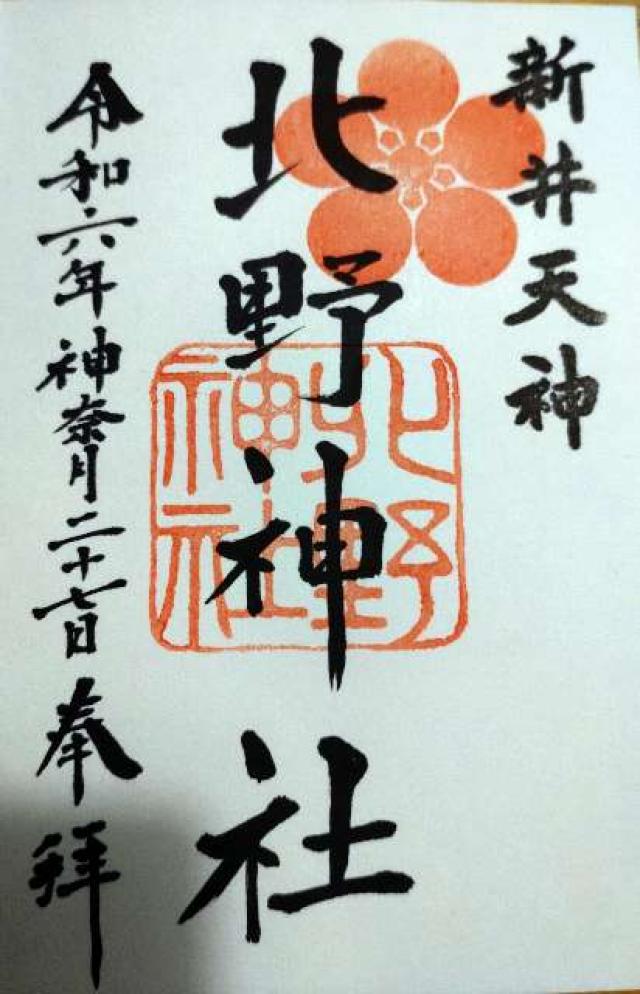 新井天神
北野神社
北野神社
令和六年神奈月二十七日奉拝